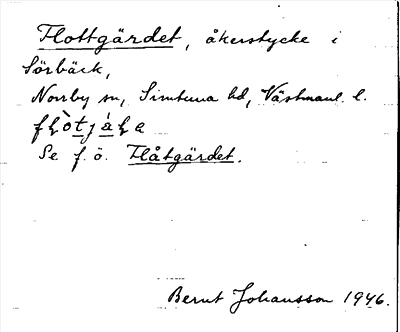 Flottgärdet, åkerstycke i
Sörbäck,
Norrby sn, Simtuna hd, Västmanl. l.
Se f. ö. Flåtgärdet.
Bernt Johansson 1946.